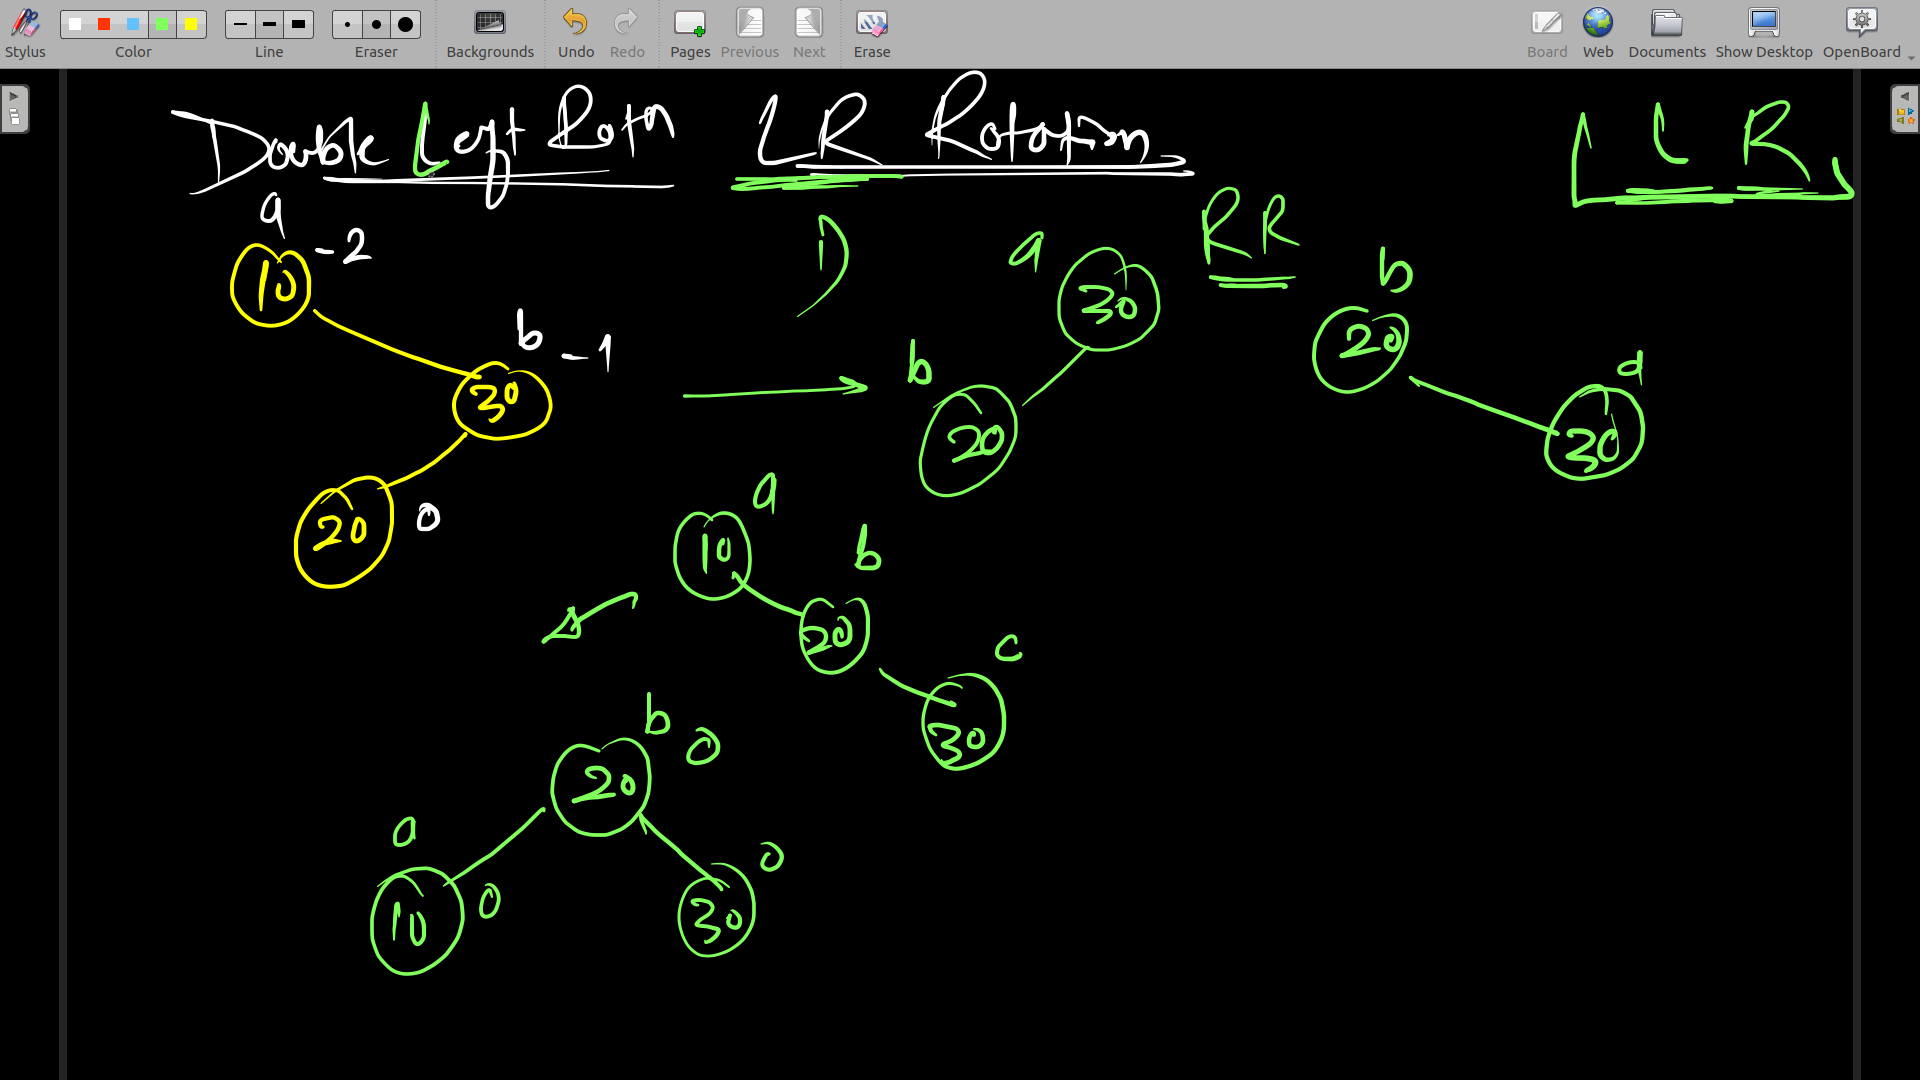 Stylus
Color
Line
Eraser
Backgrounds
Undo
Redo
Pages
Previous
Next
Erase
Board
Web
Documents
Show Desktop
OpenBoard
Double Left Rotn LR Rotation
L R
a
-2
10
b
-1
30
20
0
1)
a
30
b
20
RR
b
20
a
30
a
10
b
20
c
30
b
0
20
a
10
0
0
30